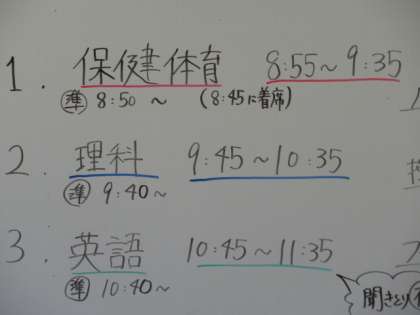 1. 保健体育 8:55~9:35
準 8:50 ~ (8:45に着席)
2. 理科 9:45~10:35
準 9:40~
3. 英語 10:45~11:35
準 10:40~
聞きとり